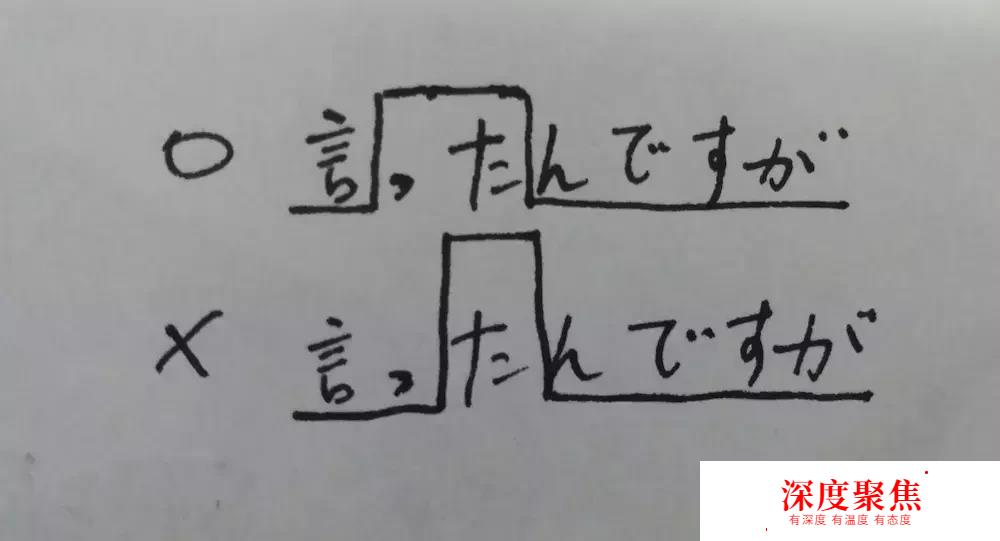 ○ 言ったんですが
× 言ったんですが
深度聚焦
有深度 有温度 有态度